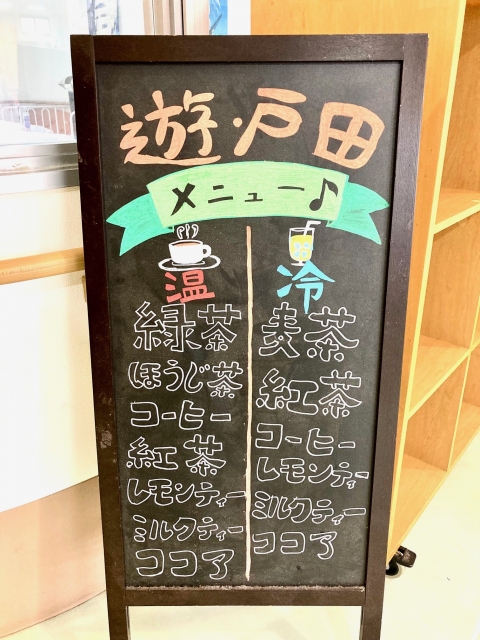 遊・戸田
メニュー♪
温
緑茶
ほうじ茶
コーヒー
紅茶
レモンティー
ミルクティー
ココア
冷
麦茶
紅茶
コーヒー
レモンティー
ミルクティー
ココア